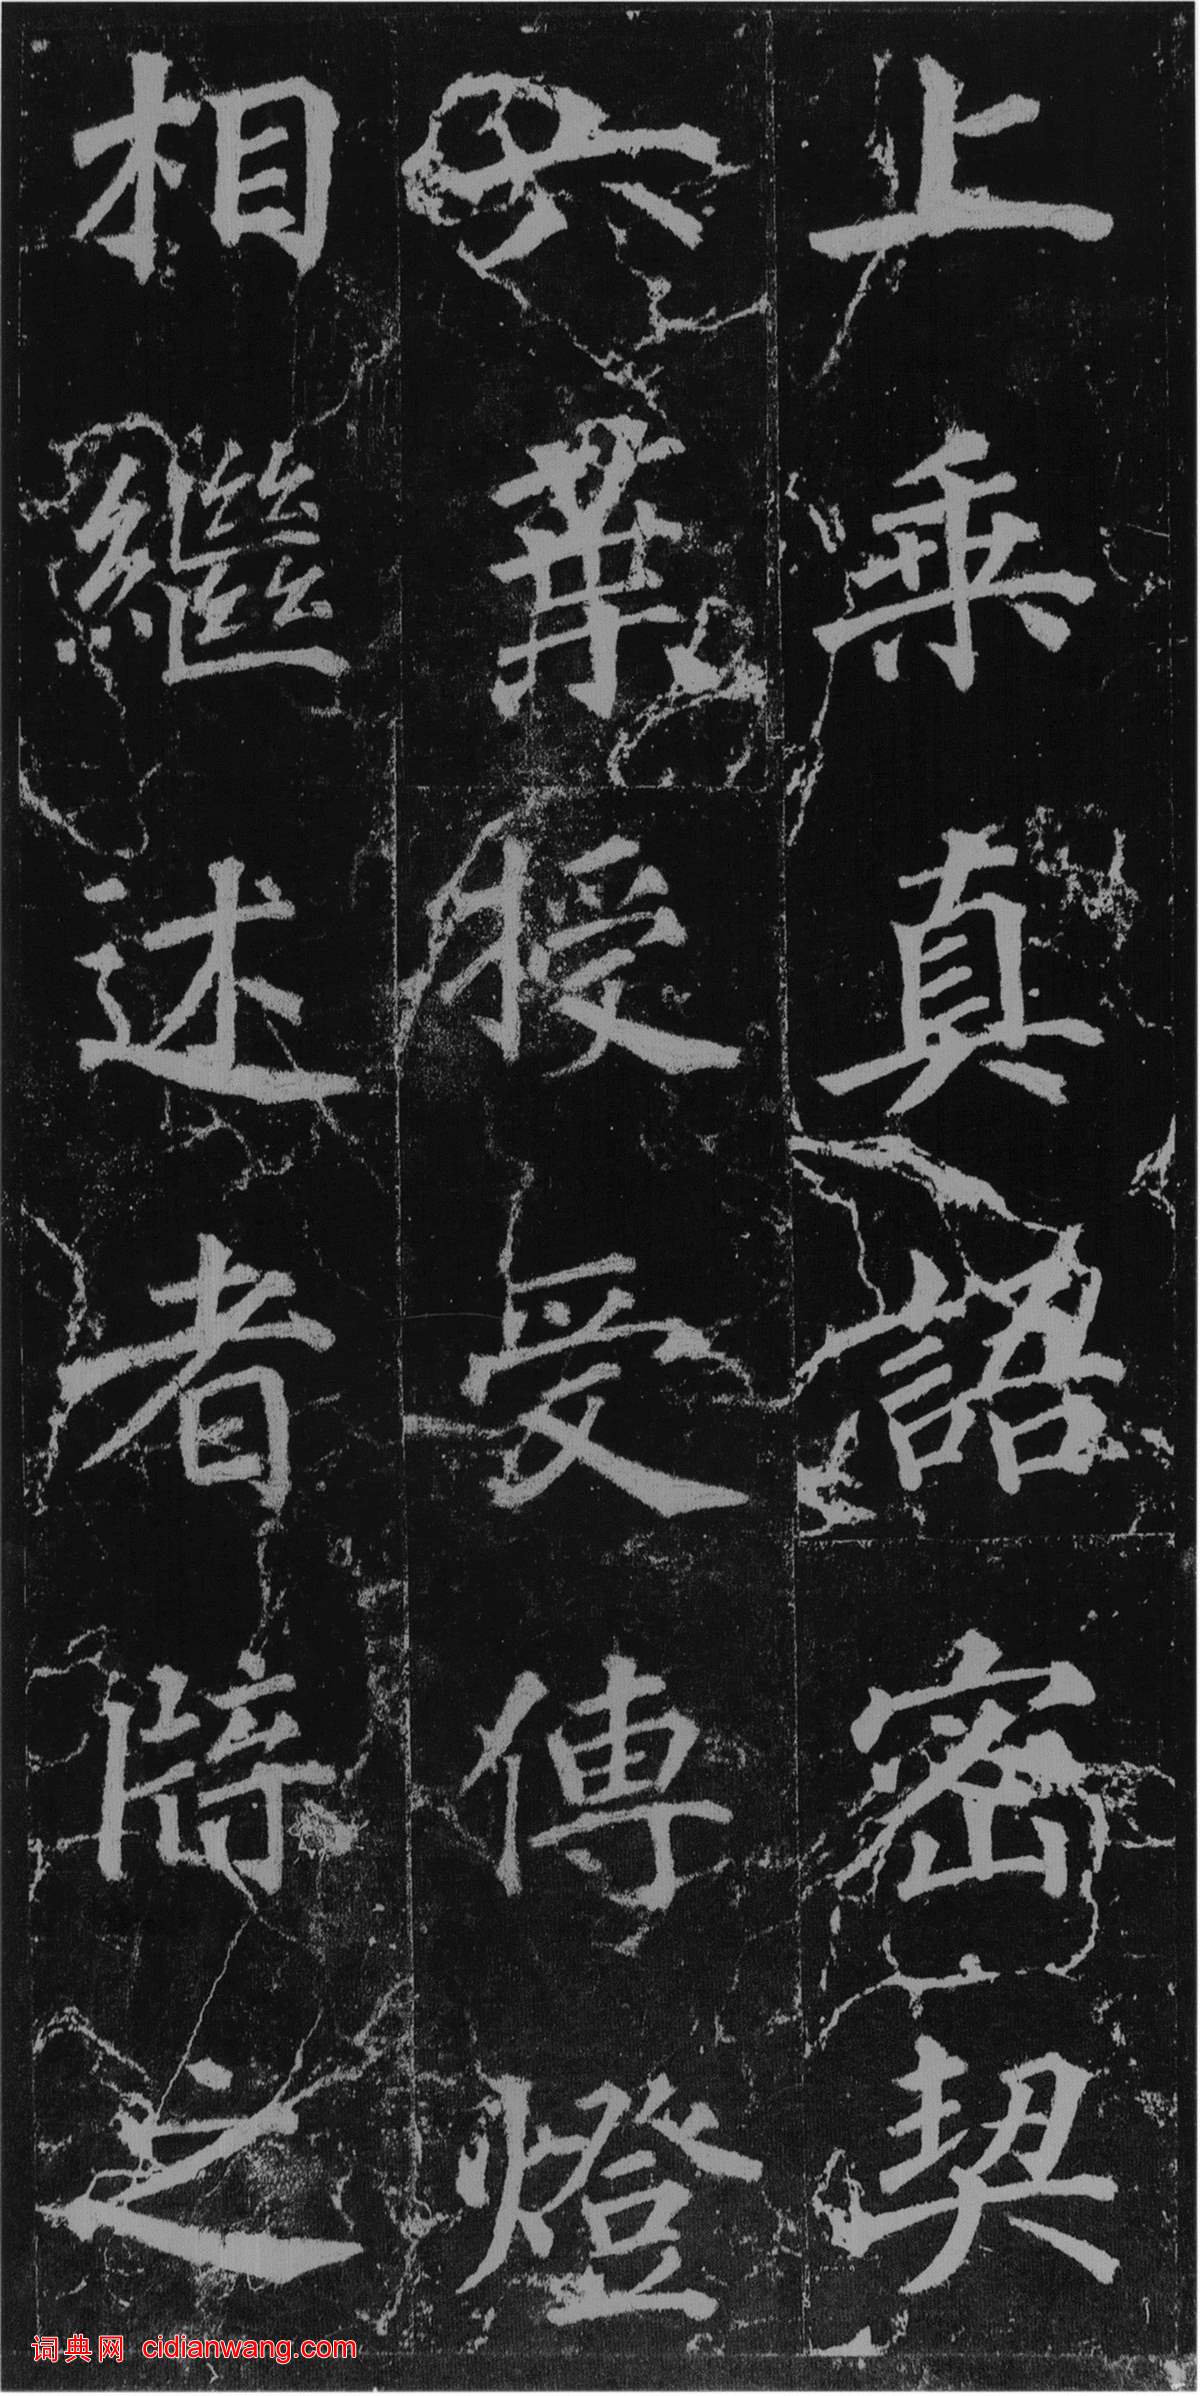 上乘真語密契
六葉授受傳燈
相繼述者牓之
词典网 cidianwang.com